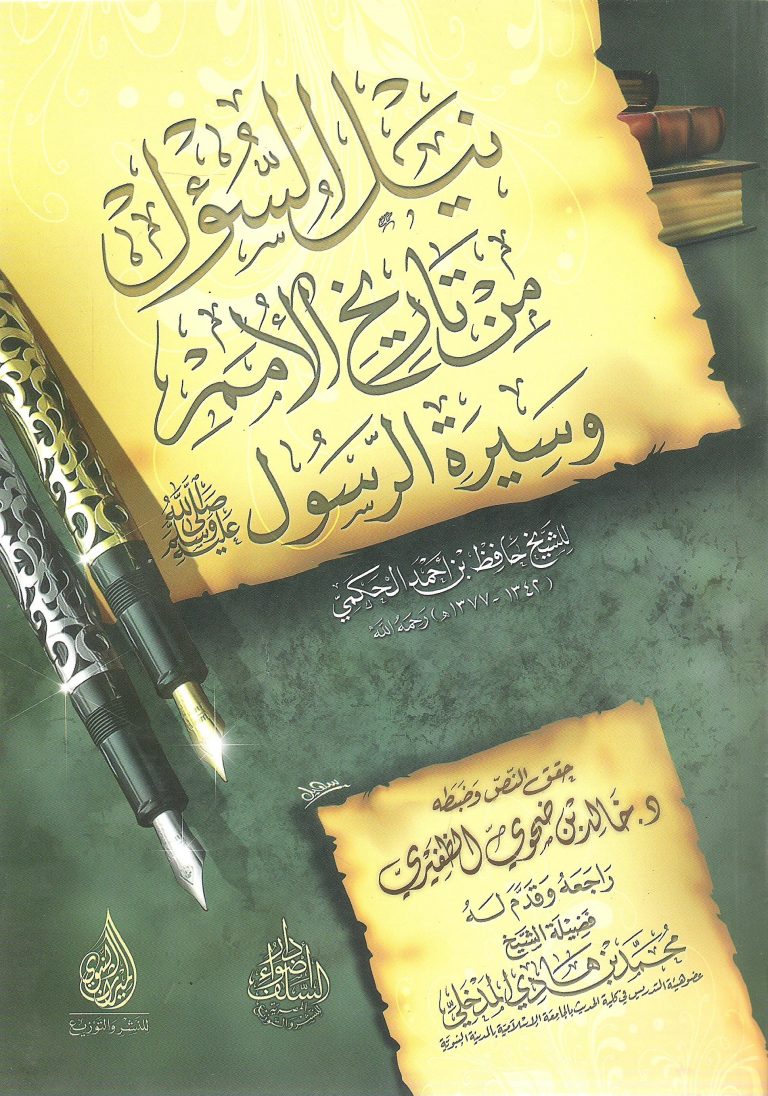 نَيْلُ السُّؤْل
مِنْ تَارِيخِ الأُمَمِ
وَسِيرَةِ الرَّسُول صلى الله عليه وسلم
لِلشَّيْخِ حَافِظْ بْنِ أَحْمَد الحَكَمِيّ
(١٣٤٢ - ١٣٧٧ هـ) رَحِمَهُ اللهُ
حقق النّصّ وَضبَطه
د. خَالِد بْن ضحوي الظفِيري
رَاجَعَهُ وَقَدَّمَ لَهُ
فَضِيلَة الشَّيْخ
مُحَمَّد بْن هَادِي المَدْخَلِيّ
عضو هيئة التدريس في كلية الحديث بالجامعة الإسلامية بالمدينة النبوية
دار أضواء السلف
المصرية
للنشر والتوزيع
الميراث النبوي
للنشر والتوزيع